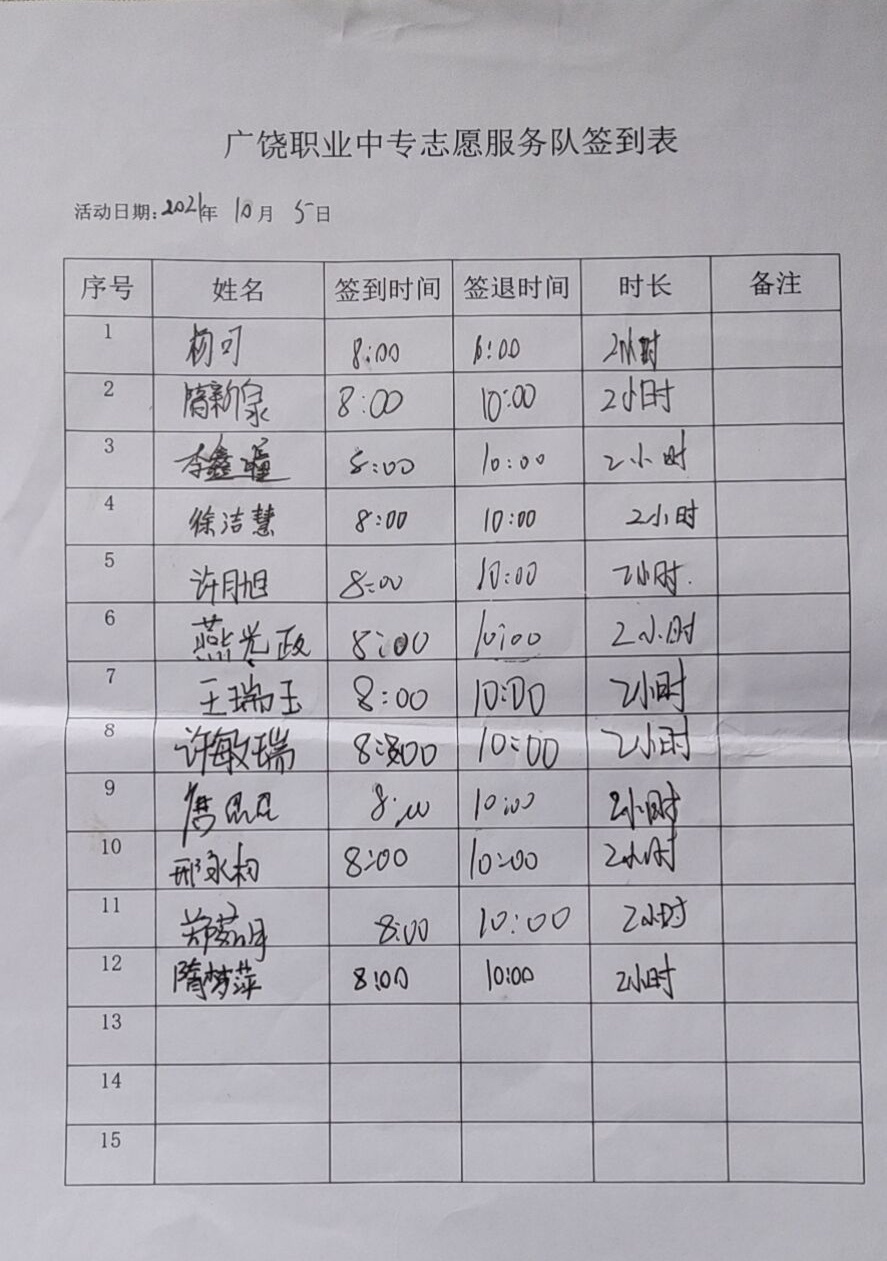 广饶职业中专志愿服务队签到表
活动日期:2021年 10月 5日
序号 姓名 签到时间 签退时间 时长 备注
1 杨可 8:00 2小时
2 隋新泉 8:00 10:00 2小时
3 李鑫 8:00 10:00 2小时
4 徐洁慧 8:00 10:00 2小时
5 许月旭 8:00 10:00 2小时.
6 燕光政 8:00 10:00 2小时
7 王瑞玉 8:00 10:00 2小时
8 许敏瑞 8:00 10:00 2小时
9 8:00 10:00 2小时
10 邢永杓 8:00 10:00 2小时
11 郑茹月 8:00 10:00 2小时
12 隋梦萍 8:00 10:00 2小时
13
14
15